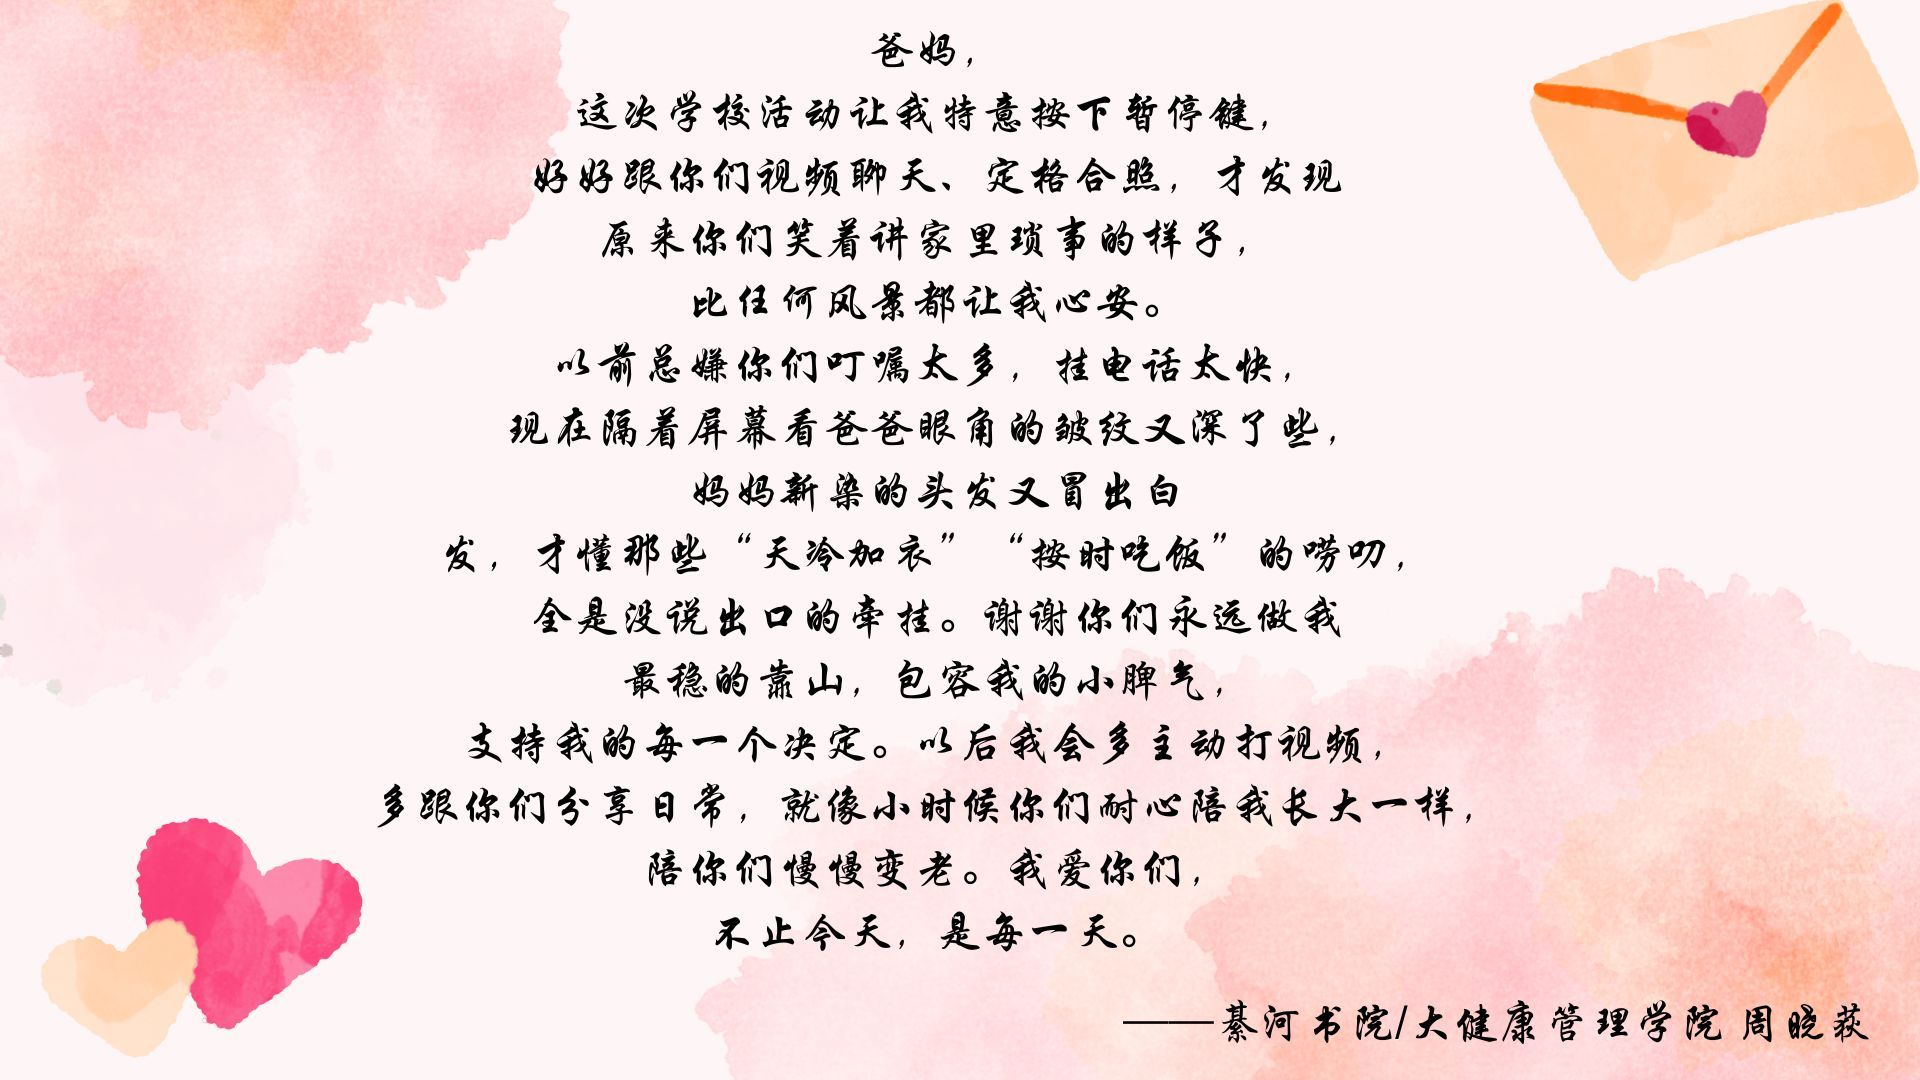 爸妈，
这次学校活动让我特意按下暂停键，
好好跟你们视频聊天、定格合照，才发现
原来你们笑着讲家里琐事的样子，
比任何风景都让我心安。
以前总嫌你们叮嘱太多，挂电话太快，
现在隔着屏幕看爸爸眼角的皱纹又深了些，
妈妈新染的头发又冒出白
发，才懂那些“天冷加衣”“按时吃饭”的唠叨，
全是没说出口的牵挂。谢谢你们永远做我
最稳的靠山，包容我的小脾气，
支持我的每一个决定。以后我会多主动打视频，
多跟你们分享日常，就像小时候你们耐心陪我长大一样，
陪你们慢慢变老。我爱你们，
不止今天，是每一天。
——綦河书院/大健康管理学院 周晓荻